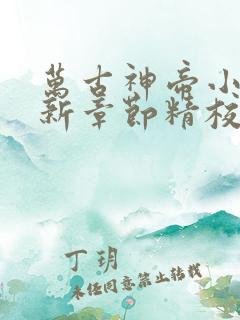 萬古神帝小
新章節精校
丁玥
未经同意禁止转载